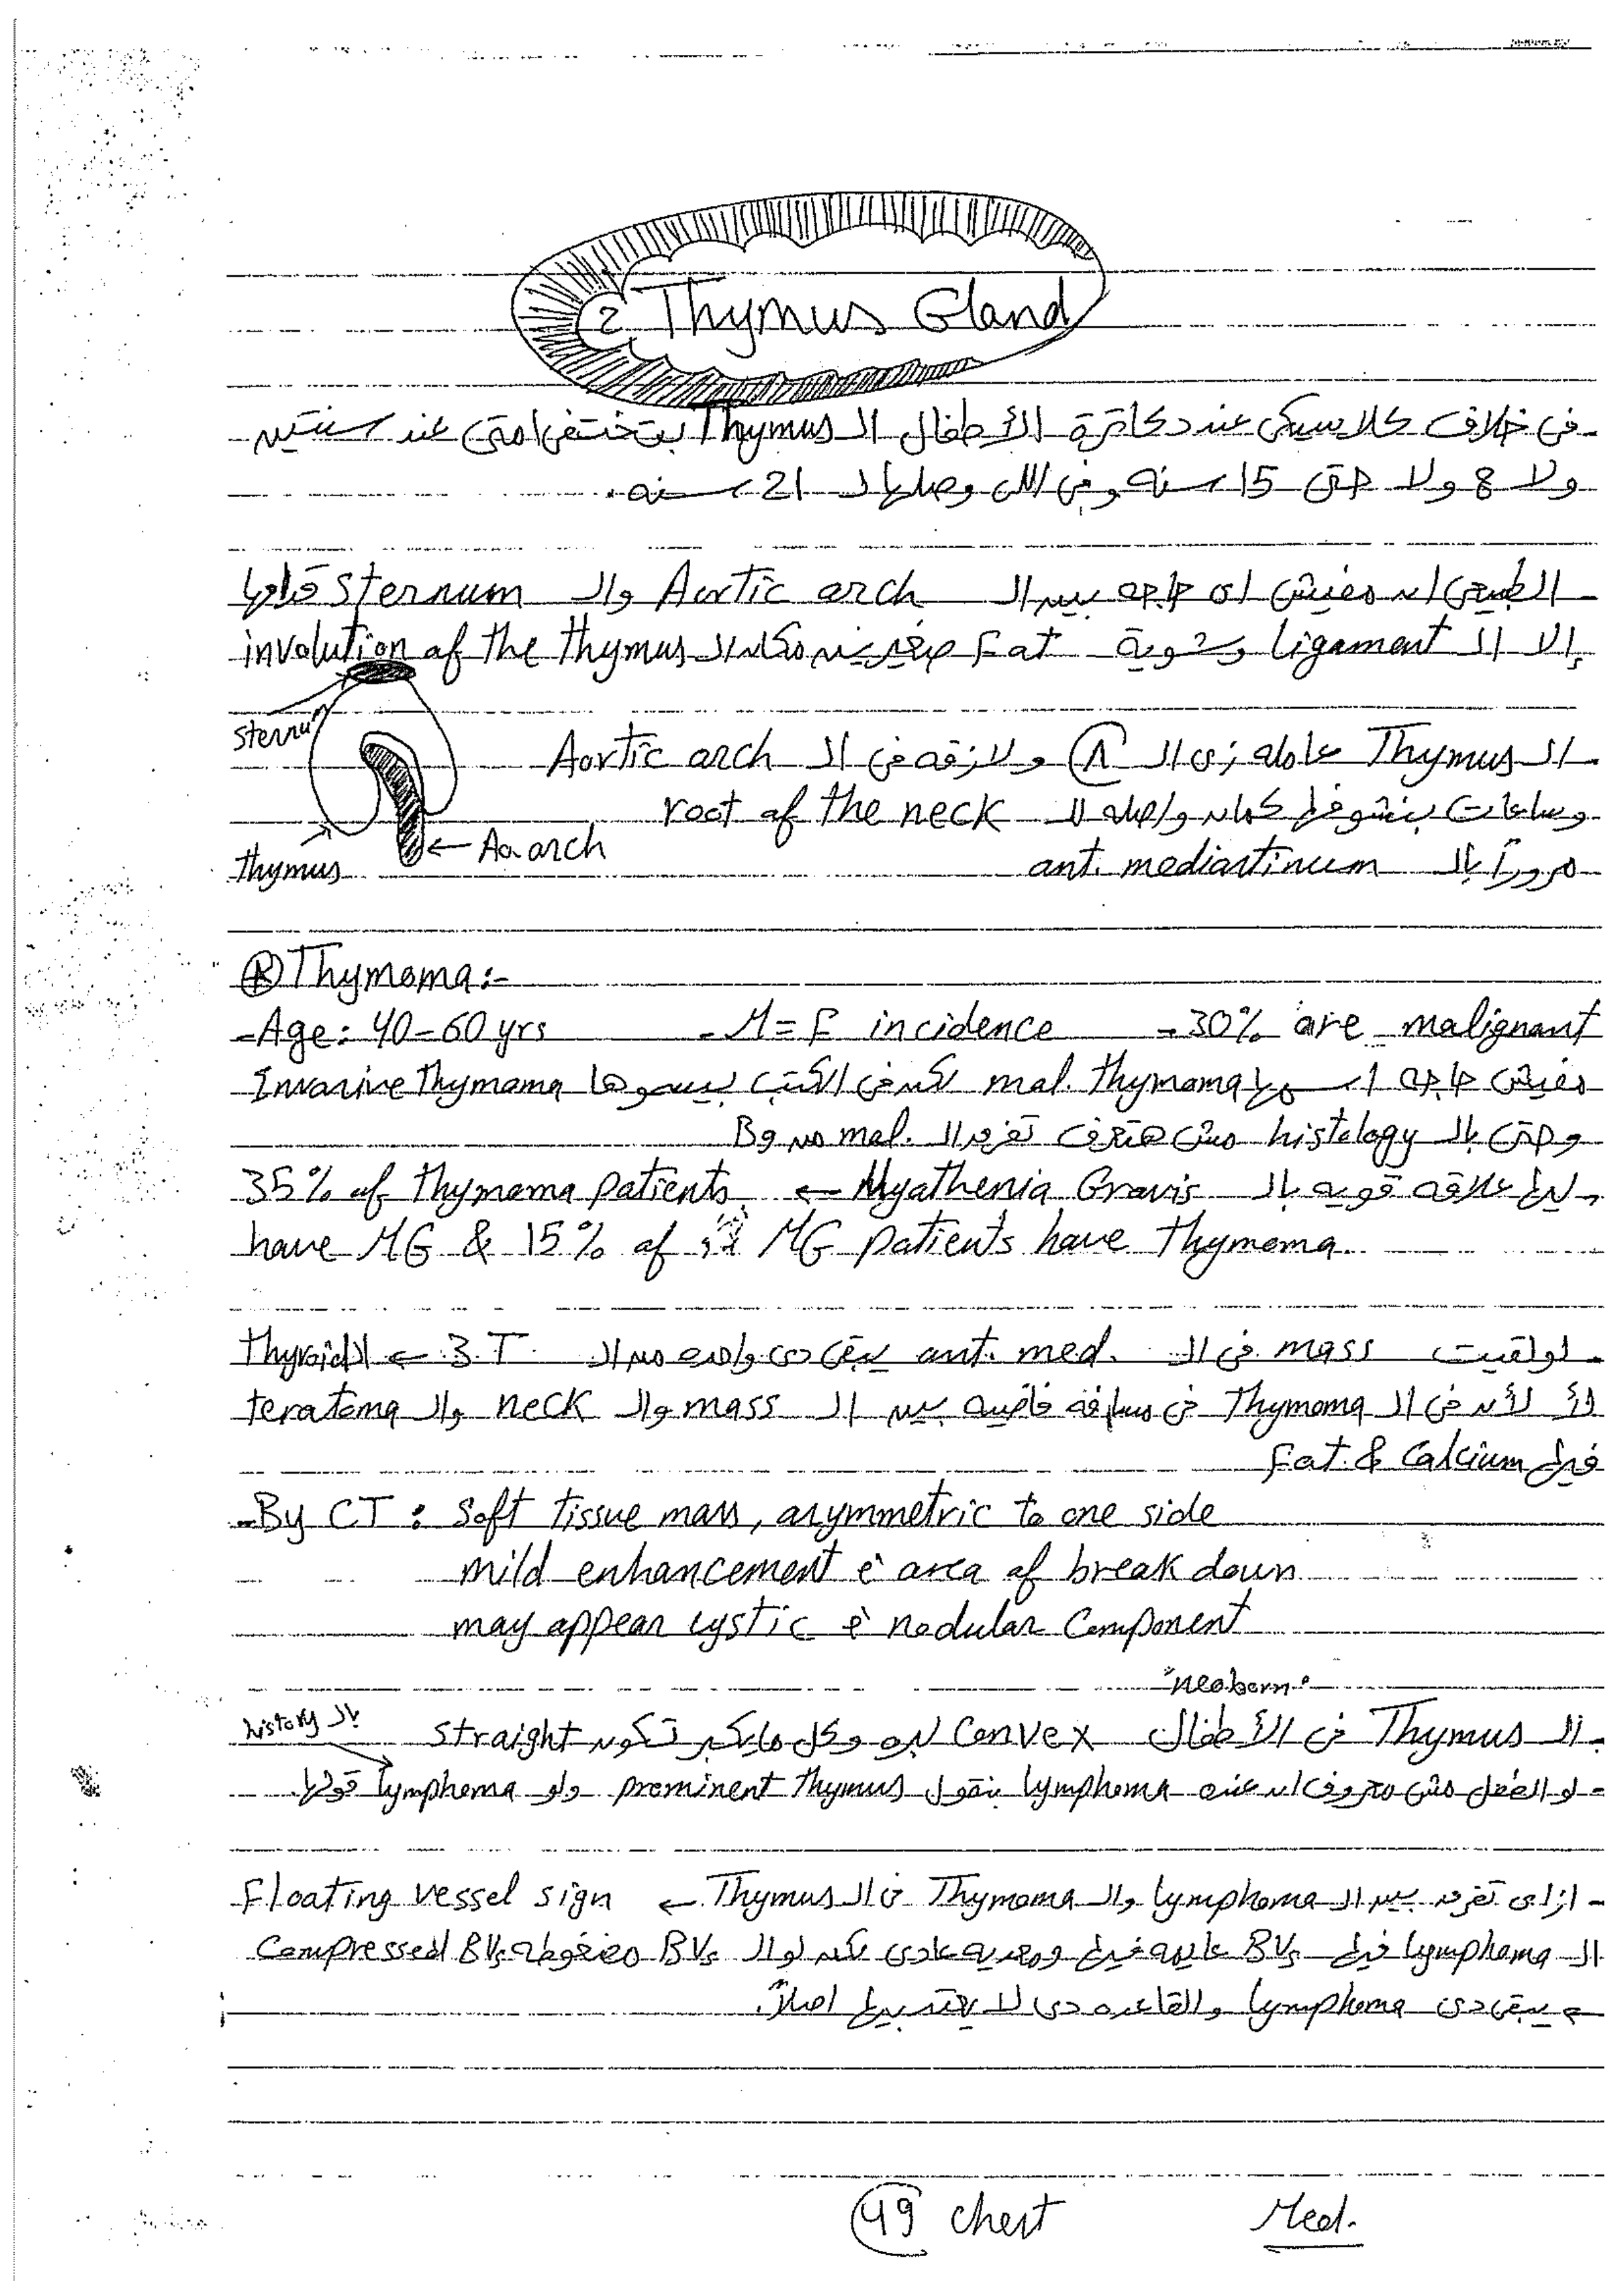 2 Thymus Gland
- فى خلاف كلاسيكى عند دكاترة الأطفال الـ Thymus بتختفى امتى عند سنتين
ولا 8 ولا حتى 15 سنه وفى اللى وصلها لـ 21 سنه.
- الطبيعى ان مفيش اى حاجه بين الـ Aortic arch والـ sternum
إلا الـ ligament وشوية Fat صغيرين مكان الـ involution of the thymus
sternum
- الـ Thymus عامله زى الـ 8 ولازقه فى الـ Aortic arch
وساعات بنشوفها كمان واصله لـ root of the neck
مروراً بالـ ant. mediastinum
Thymus
← Ao arch
Thymoma :-
- Age: 40-60 yrs - M = F incidence - 30% are malignant
مفيش حاجه اسمها mal. thymoma لكن فى الكتب بيسموها Invasive Thymoma
وحتى بالـ histology مش هتعرف تفرق الـ mal. من B
- ليها علاقه قويه بالـ Myathenia Gravis ← 35% of Thymoma patients
have MG & 15% of MG patients have Thymoma
- لو لقيت mass فى الـ ant. med. يبقى دى واحده من الـ 3 T ← Thyroid
لأ لأن فى الـ Thymoma فى مسافة فاضيه بين الـ mass والـ neck والـ teratoma
فيها Fat & Calcium
- By CT : Soft tissue mass, asymmetric to one side
mild enhancement ē area of break down
may appear cystic ē nodular Component
"neoborn"
- الـ Thymus فى الأطفال Convex لبره وكل مايكبر تكون straight
بالـ history
- لو الطفل مش معروف ان عنده lymphoma بنقول prominent thymus ولو lymphoma قولها.
- ازاى تفرق بين الـ lymphoma والـ Thymoma فى الـ Thymus ← Floating vessel sign
الـ lymphoma فيها BVs عايمه فيها ومعديه عادى لكن لو الـ BVs مضغوطه Compressed BVs
يبقى دى lymphoma والقاعده دى لا يعتد بيها اصلاً.
49 chest Med.